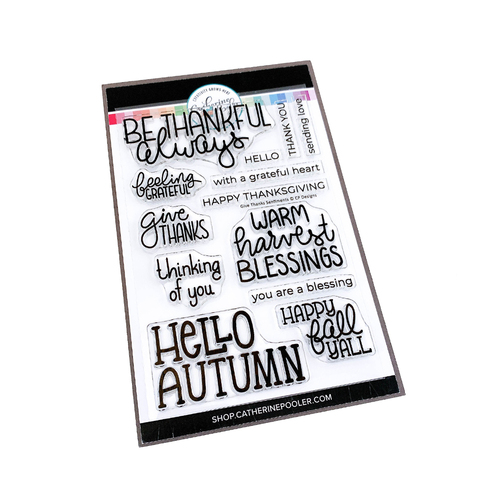 BE THANKFUL
always
HELLO
THANK YOU
sending love
feeling
GRATEFUL
with a grateful heart
HAPPY THANKSGIVING
Give Thanks Sentiments © CP Designs
give
THANKS
WARM
harvest
BLESSINGS
thinking
of you
you are a blessing
HAPPY
fall
Y'ALL
HELLO
AUTUMN
SHOP.CATHERINEPOOLER.COM